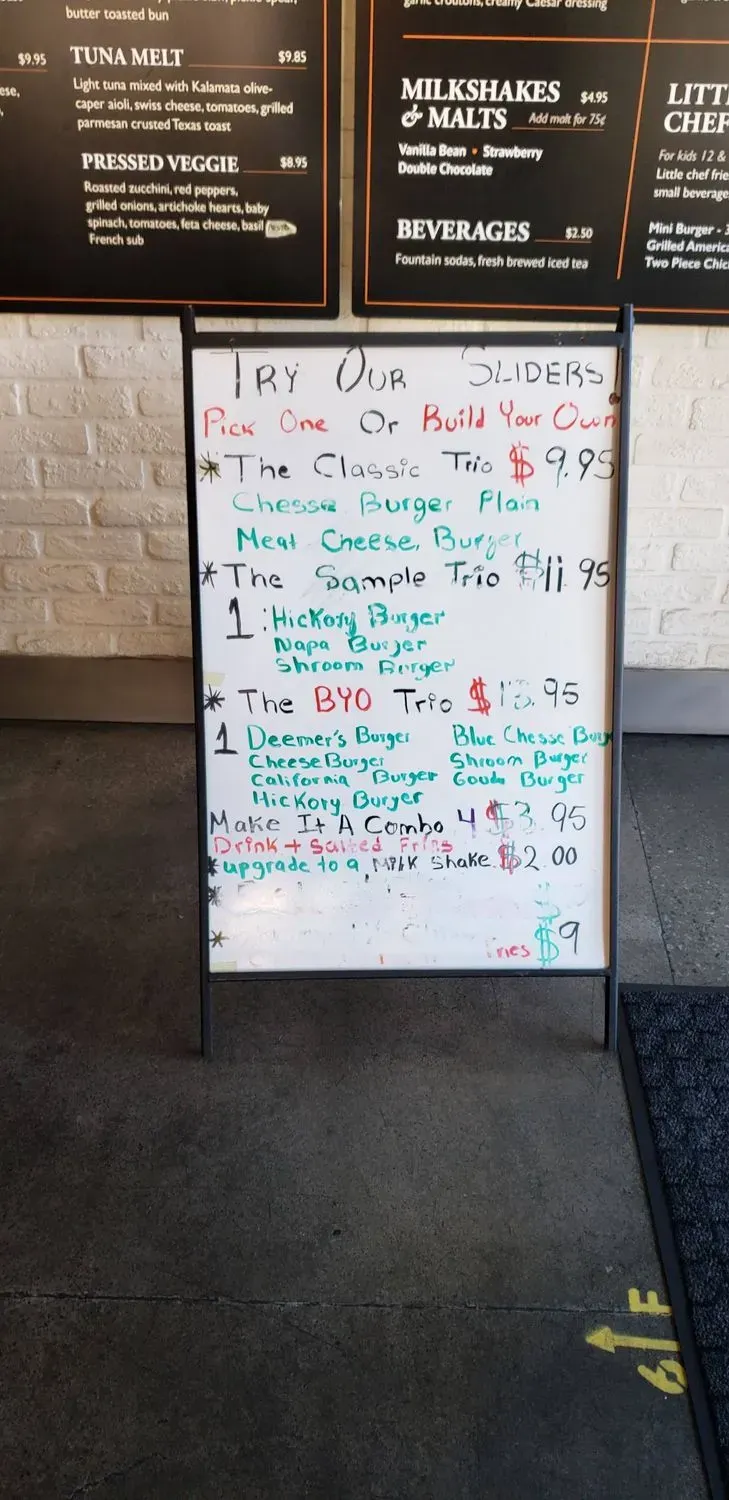 butter toasted bun
$9.95
TUNA MELT $9.85
Light tuna mixed with Kalamata olive-
caper aioli, swiss cheese, tomatoes, grilled
parmesan crusted Texas toast
PRESSED VEGGIE $8.95
Roasted zucchini, red peppers,
grilled onions, artichoke hearts, baby
spinach, tomatoes, feta cheese, basil
French sub
garlic croutons, creamy Caesar dressing
MILKSHAKES $4.95
& MALTS Add malt for 75¢
Vanilla Bean • Strawberry
Double Chocolate
BEVERAGES $2.50
Fountain sodas, fresh brewed iced tea
LITT
CHEF
For kids 12 &
Little chef frie
small beverage
Mini Burger - 
Grilled America
Two Piece Chic
TRY OUR SLIDERS!
Pick One Or Build Your Own
* The Classic Trio $ 9.95
Chesse Burger Plain
Meat Cheese, Burger
* The Sample Trio $11.95
1 : Hickory Burger
Napa Burger
Shroom Burger
* The BYO Trio $13.95
1 Deemer's Burger Blue Chesse Burge
Cheese Burger Shroom Burger
California Burger Gouda Burger
Hickory Burger
Make It A Combo 4 $3.95
Drink + Salted Fries
* upgrade to a Milk Shake $2.00
*
* Fries $9
6 F